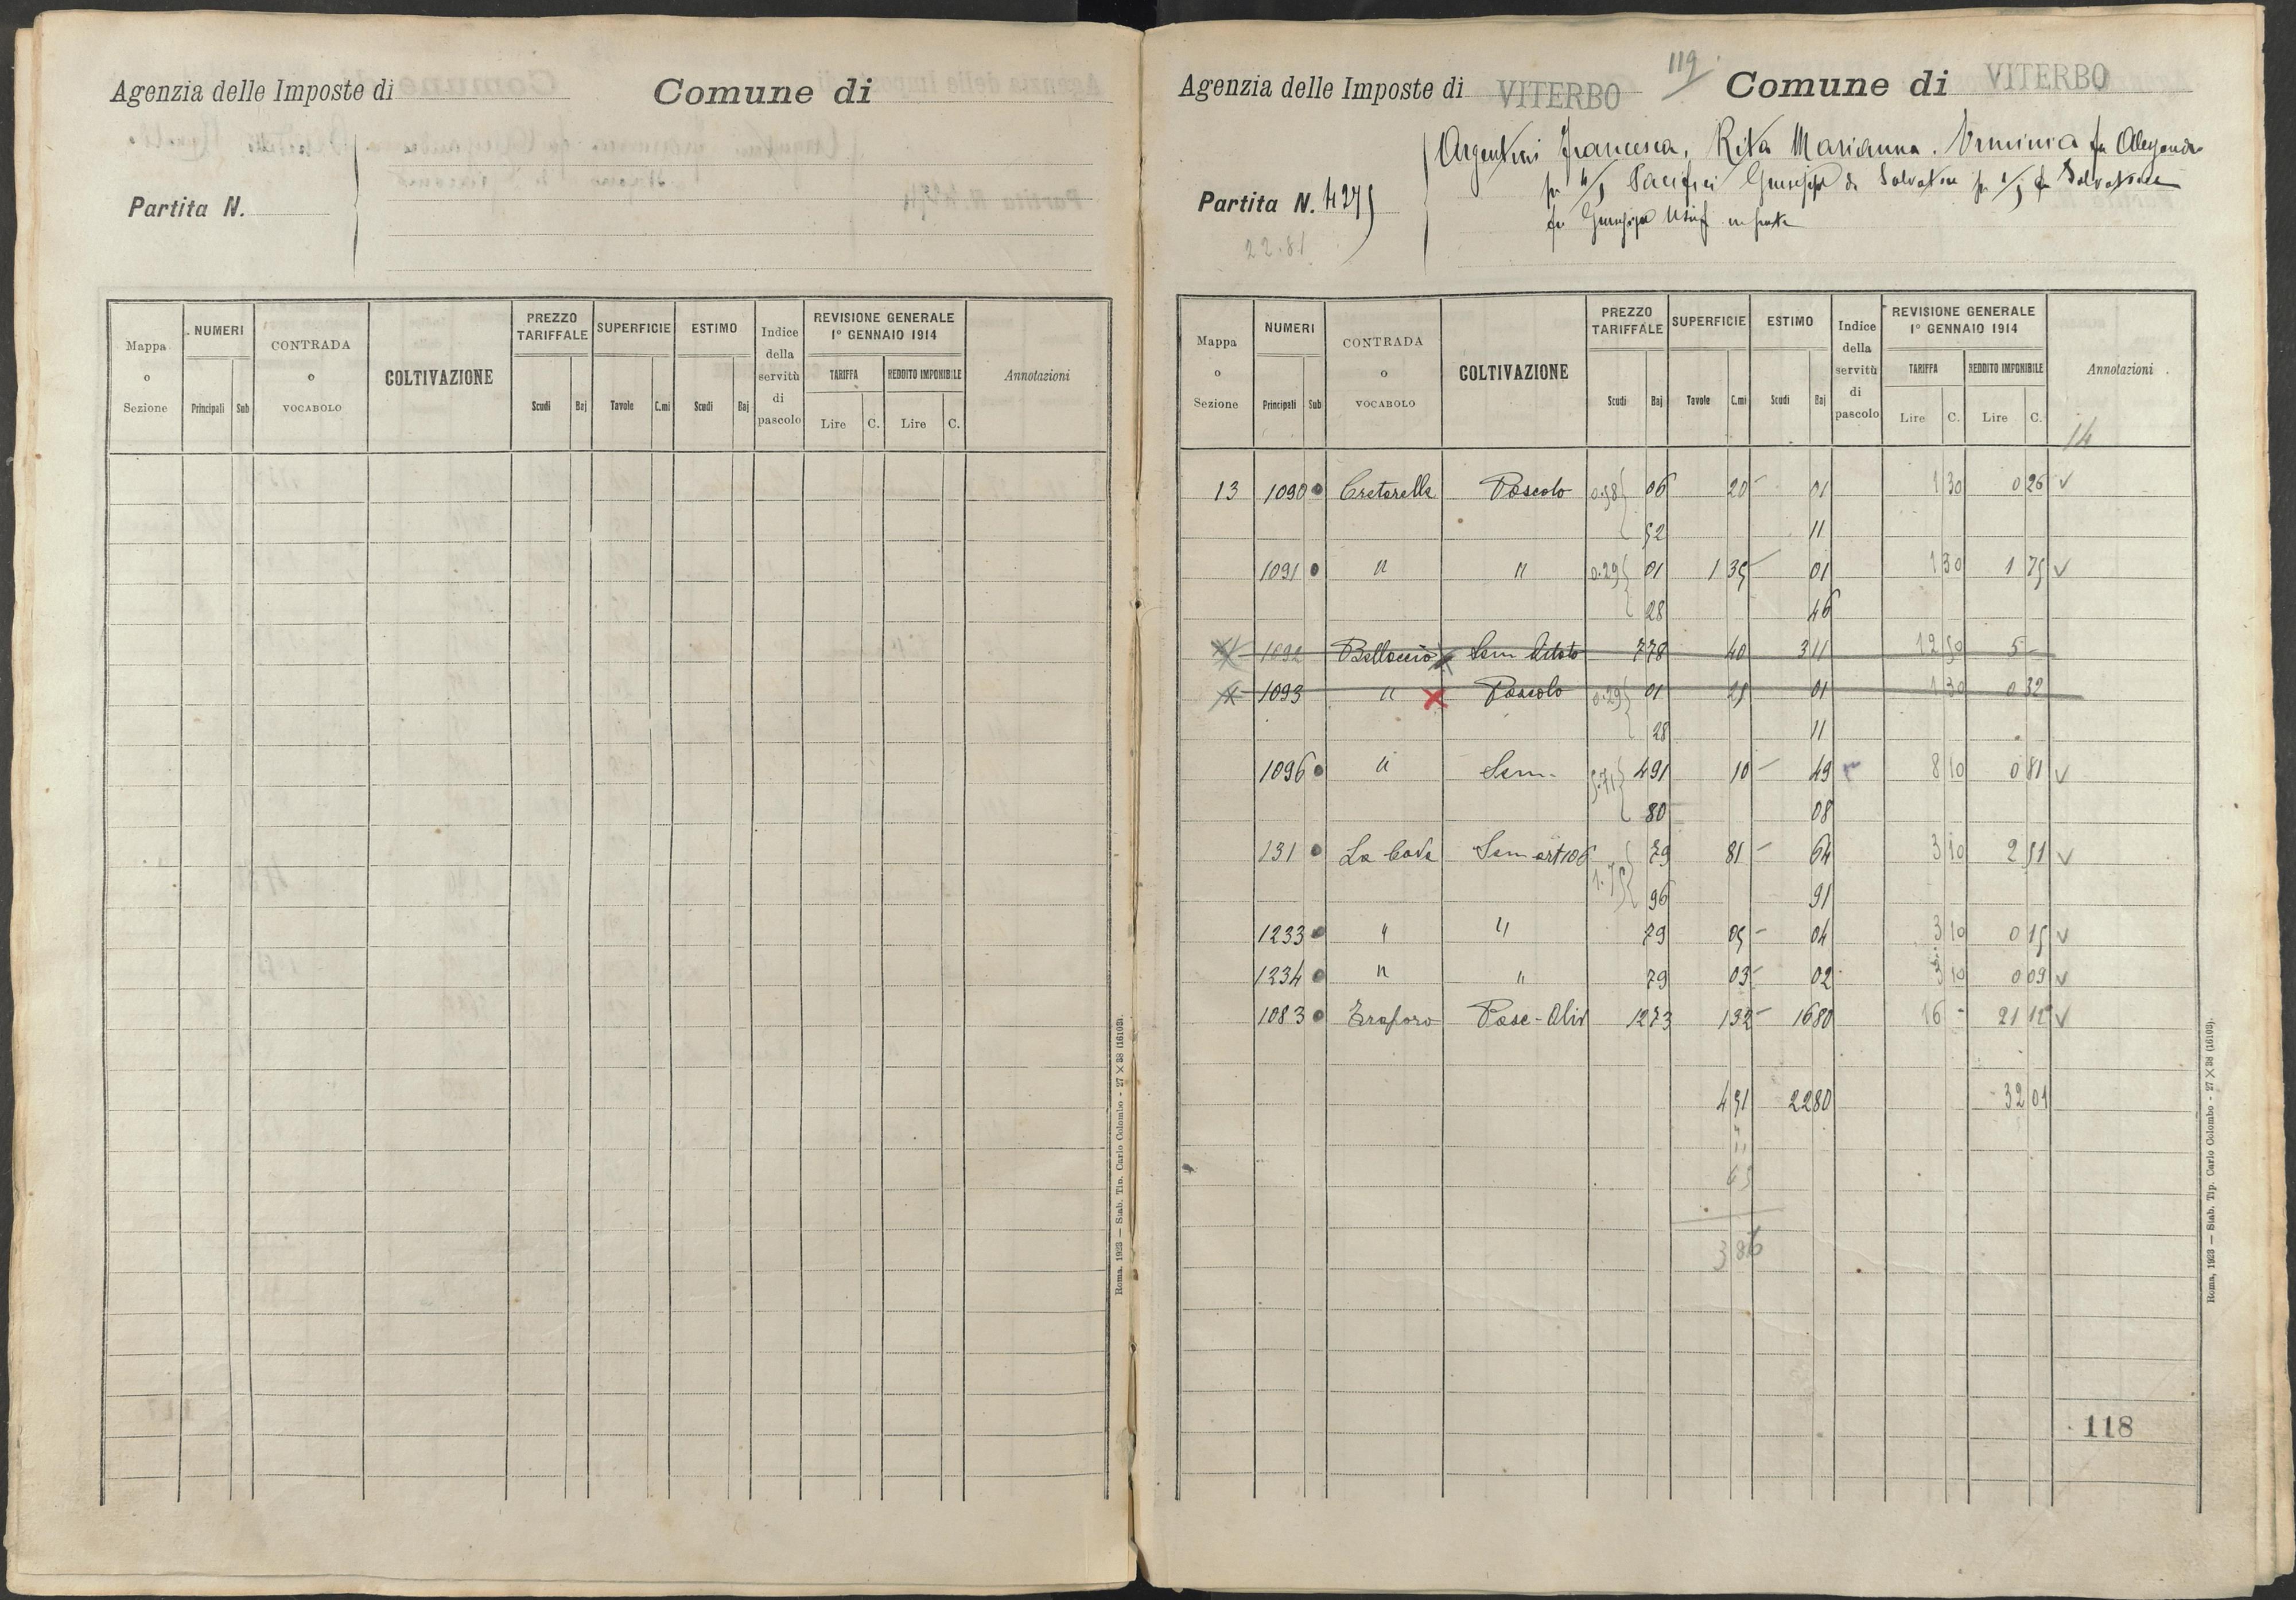 Agenzia delle Imposte di
Comune di
Partita N.
Mappa o Sezione
NUMERI
Principali Sub
CONTRADA o VOCABOLO
COLTIVAZIONE
PREZZO TARIFFALE
Scudi Baj
SUPERFICIE
Tavole C.mi
ESTIMO
Scudi Baj
Indice della servitù di pascolo
REVISIONE GENERALE 1° GENNAIO 1914
TARIFFA
Lire C.
REDDITO IMPONIBILE
Lire C.
Annotazioni
Roma, 1923 — Stab. Tip. Carlo Colombo - 27 × 38 (16103).
119
Agenzia delle Imposte di VITERBO Comune di VITERBO
Argentini Francesca, Rita Marianna. Erminia fu Alessandro
Partita N. 4275
per 4/5 Pacifici Giuseppe di Salvatore per 1/5 fu Salvatore
fu Giuseppe Usuf in parte
22.81
Mappa o Sezione
NUMERI
Principali Sub
CONTRADA o VOCABOLO
COLTIVAZIONE
PREZZO TARIFFALE
Scudi Baj
SUPERFICIE
Tavole C.mi
ESTIMO
Scudi Baj
Indice della servitù di pascolo
REVISIONE GENERALE 1° GENNAIO 1914
TARIFFA
Lire C.
REDDITO IMPONIBILE
Lire C.
Annotazioni
14
13 1090 Cretarella Pascolo 0.58 06 20 01 1 30 0 26 v
52 11
1091 " " 0.29 01 1 35 01 1 30 1 75 v
28 46
1092 Bellaccio Sem Vitato 778 40 311 12 50 5 -
1093 " Pascolo 0.29 01 25 01 1 30 0 32
28 11
1096 " Sem. 5.71 491 10 49 8 10 0 81 v
80 08
131 La Cava Sem art 106 1.75 79 81 64 3 10 2 51 v
96 91
1233 " " 79 05 04 3 10 0 15 v
1234 " " 79 03 02 3 10 0 09 v
1083 Traforo Pasc-Oliv 1273 132 1680 16 - 21 12 v
4 51 2280 32 01
65
3 86
118
Roma, 1923 — Stab. Tip. Carlo Colombo - 27 × 38 (16103).